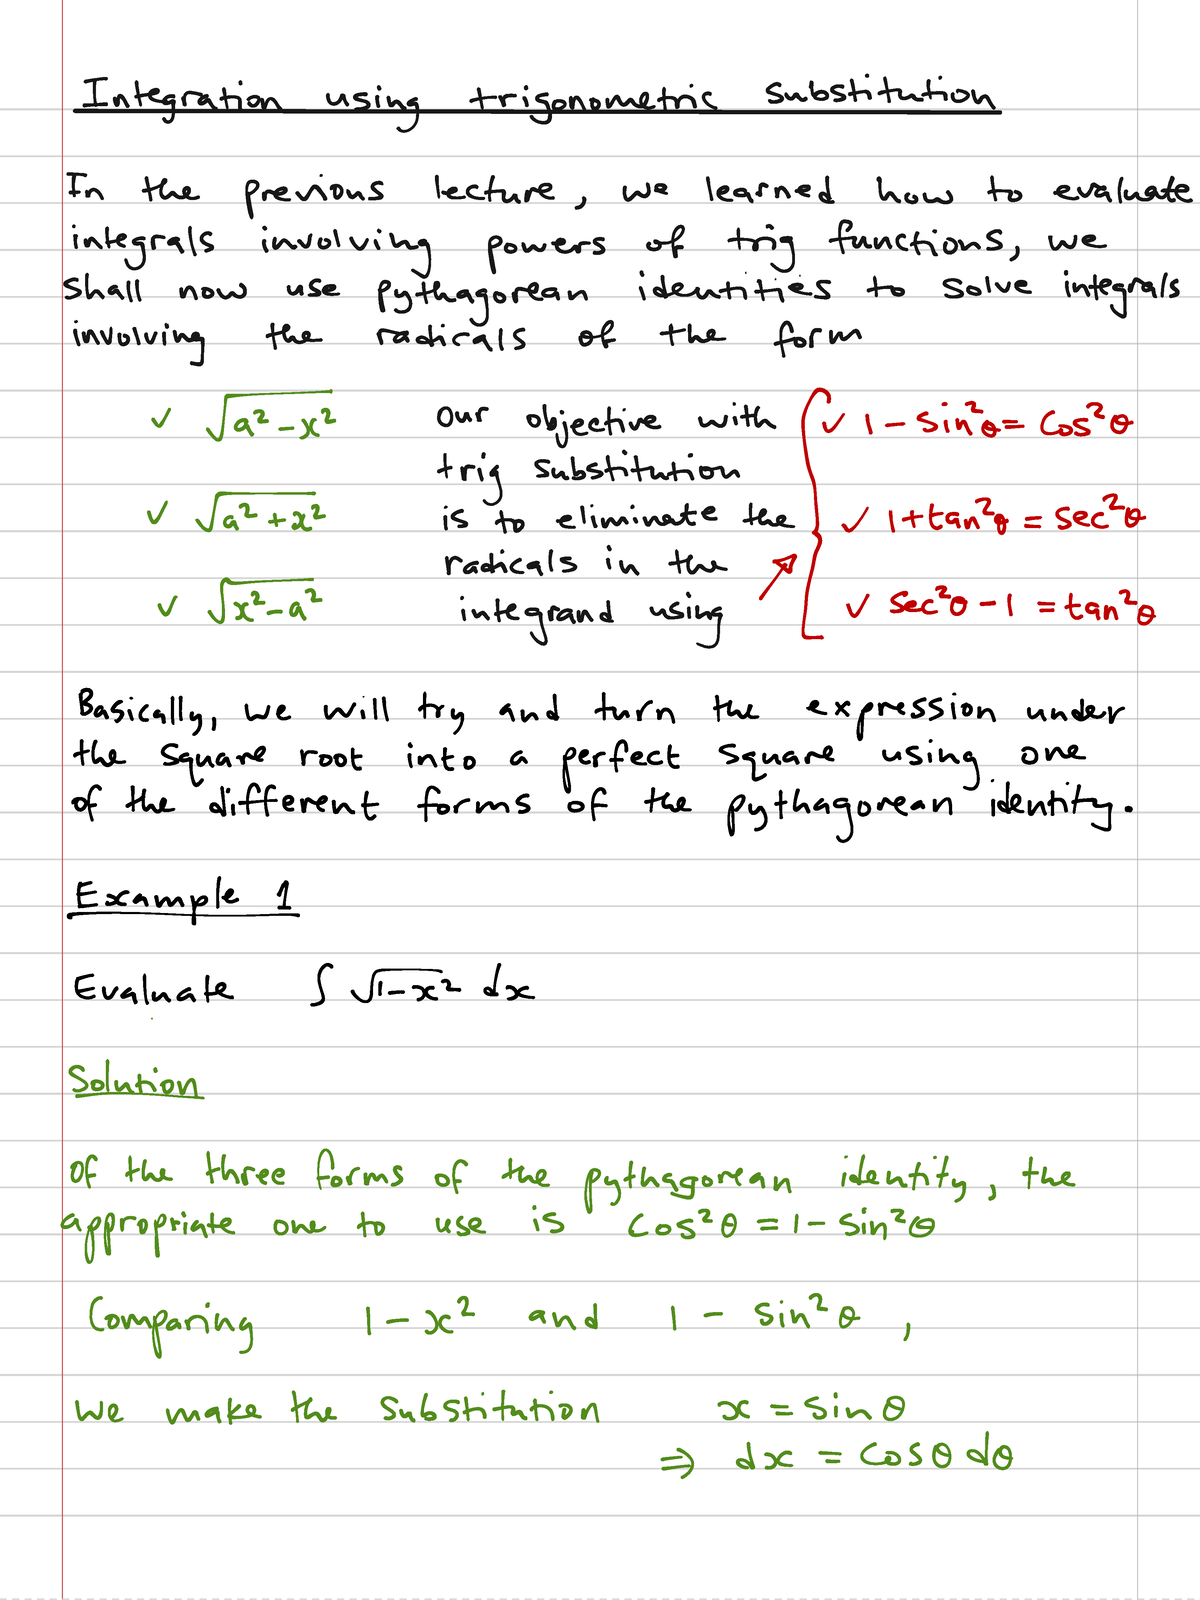 Integration using trigonometric substitution
In the previous lecture, we learned how to evaluate
integrals involving powers of trig functions, we
shall now use pythagorean identities to solve integrals
involving the radicals of the form
✓ √(a²-x²) our objective with ✓ 1-sin²θ = cos²θ
trig substitution
✓ √(a²+x²) is to eliminate the ✓ 1+tan²θ = sec²θ
radicals in the
✓ √(x²-a²) integrand using ✓ sec²θ-1 = tan²θ
Basically, we will try and turn the expression under
the square root into a perfect square using one
of the different forms of the pythagorean identity.
Example 1
Evaluate ∫ √(1-x²) dx
Solution
Of the three forms of the pythagorean identity, the
appropriate one to use is cos²θ = 1- sin²θ
Comparing 1-x² and 1 - sin²θ ,
we make the substitution x = sinθ
⇒ dx = cosθ dθ